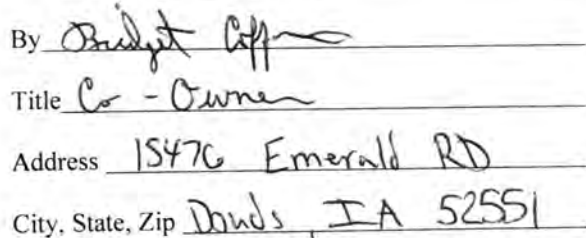 By Bridget
Title Co - Owner
Address 15476 Emerald RD
City, State, Zip Douds IA 52551